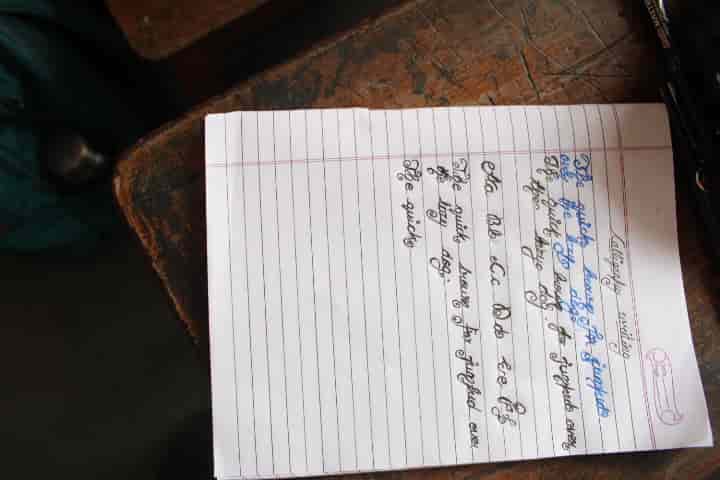 Calligraphy writing
The quick brown fox jumped
over the lazy dog.
The quick brown fox jumped over
lazy dog.
Aa Bb Cc Dd Ee Ff
The quick brown fox jumped over
the lazy dog.
The quick